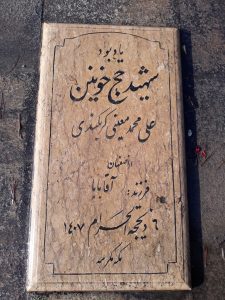 یادبود
شهید حج خونین
علی محمد معینی کربکندی
اصفهان
فرزند: آقابابا
۶ ذیحجه الحرام ۱۴۰۷
مکه مکرمه